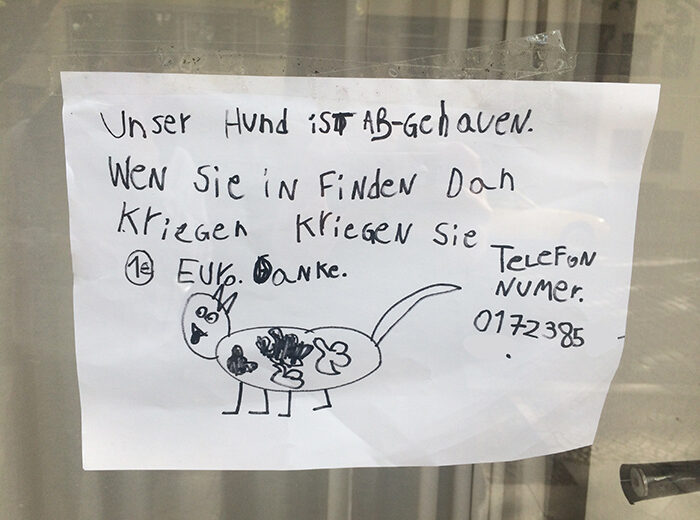 Unser Hund iST AB-Gehauen.
Wen Sie in Finden Dan
Kriegen Kriegen Sie
1€ Euro. Danke.
Telefon
Numer.
0172385